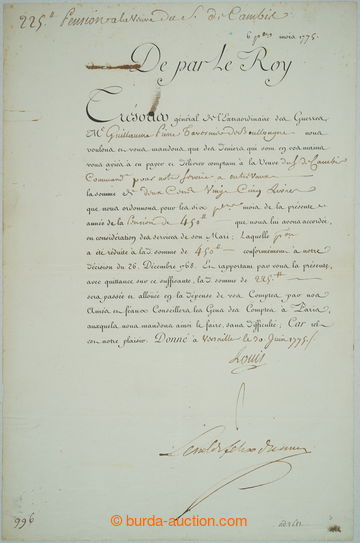 225.ᵗᵗ Pension a la Veuve du S. de Cambis
6 pᵉʳˢ mois 1775.
De par Le Roy
Trésorier général de l'Extraordinaire des Guerres
Mᵉ Guillaume Pierre Tavernier De Boullongne nous
voulons et vous mandons que des deniers qui sont en vos mains
vous ayiés à en payer et délivrer comptant à la Veuve du S. de Cambis
Commandᵗ pour notre service a
la somme de deux Cents Vingt Cinq Livres
que nous ordonnons pour les six pᵉʳˢ mois de la présente
année de la Pension de 450ᵗᵗ que nous lui avons accordée,
en considération des services de son Mari; Laquelle pᵒⁿ
a été réduite à la d. somme de 450ᵗᵗ conformément a notre
décision du 26. Décembre 1768. En rapportant par vous la présente,
avec quittance sur ce suffisante, la d. somme de 225.ᵗᵗ
sera passée et allouée en la dépense de vos Comptes par nos
Amés et féaux Conseillers les Gens des Comptes à Paris,
auxquels nous mandons ainsi le faire, sans difficulté; Car tel
est notre plaisir. Donné à Versailles le 30 Juin 1775./.
Louis
996
© burda-auction.com